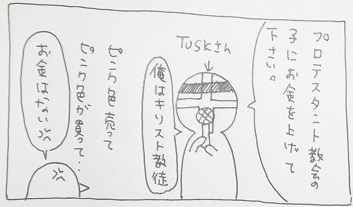 プロテスタント教会の
子にお金を上げて
下さい。
TUSKさん
俺はキリスト教徒
ピンク色売って
ピンク色が買って…
お金はない